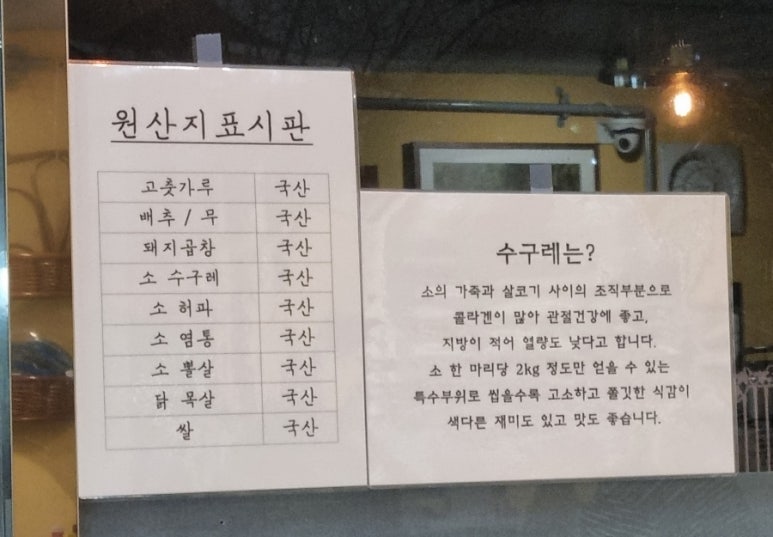 원산지표시판
고춧가루 국산
배추 / 무 국산
돼지곱창 국산
소 수구레 국산
소 허파 국산
소 염통 국산
소 뽈살 국산
닭 목살 국산
쌀 국산
수구레는?
소의 가죽과 살코기 사이의 조직부분으로
콜라겐이 많아 관절건강에 좋고,
지방이 적어 열량도 낮다고 합니다.
소 한 마리당 2kg 정도만 얻을 수 있는
특수부위로 씹을수록 고소하고 쫄깃한 식감이
색다른 재미도 있고 맛도 좋습니다.